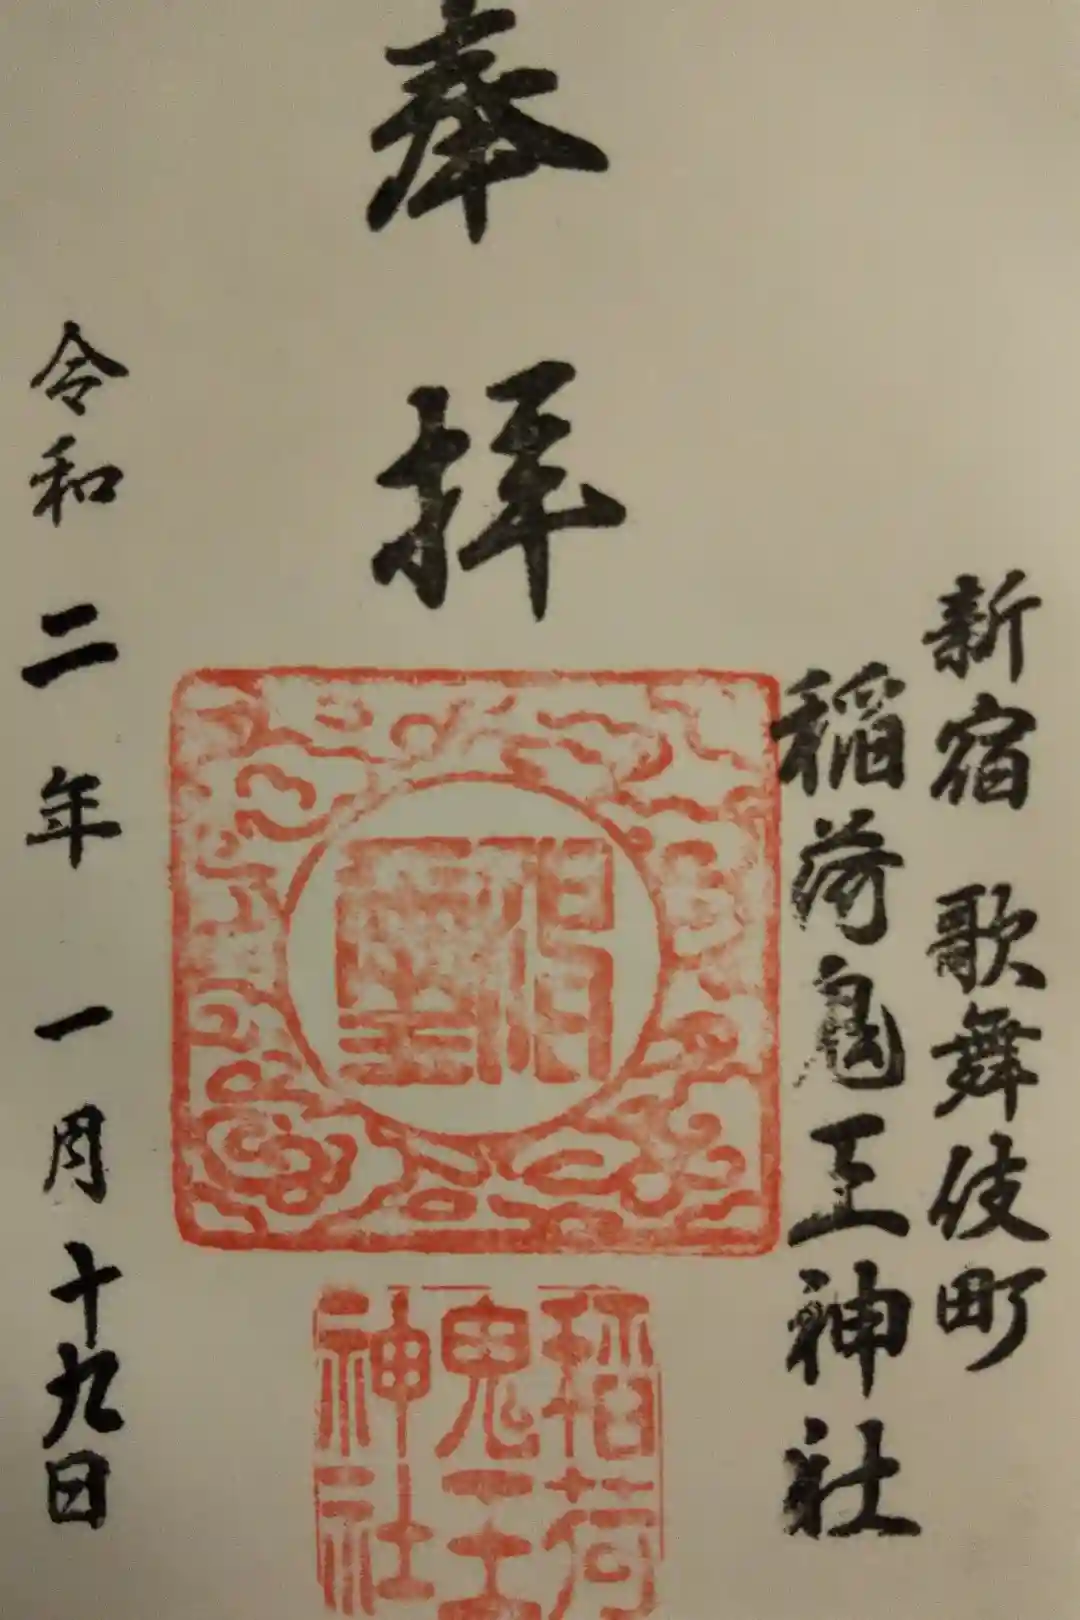 新宿 歌舞伎町
稲荷鬼王神社
奉拝
令和二年 一月十九日
稲荷
鬼王
神社